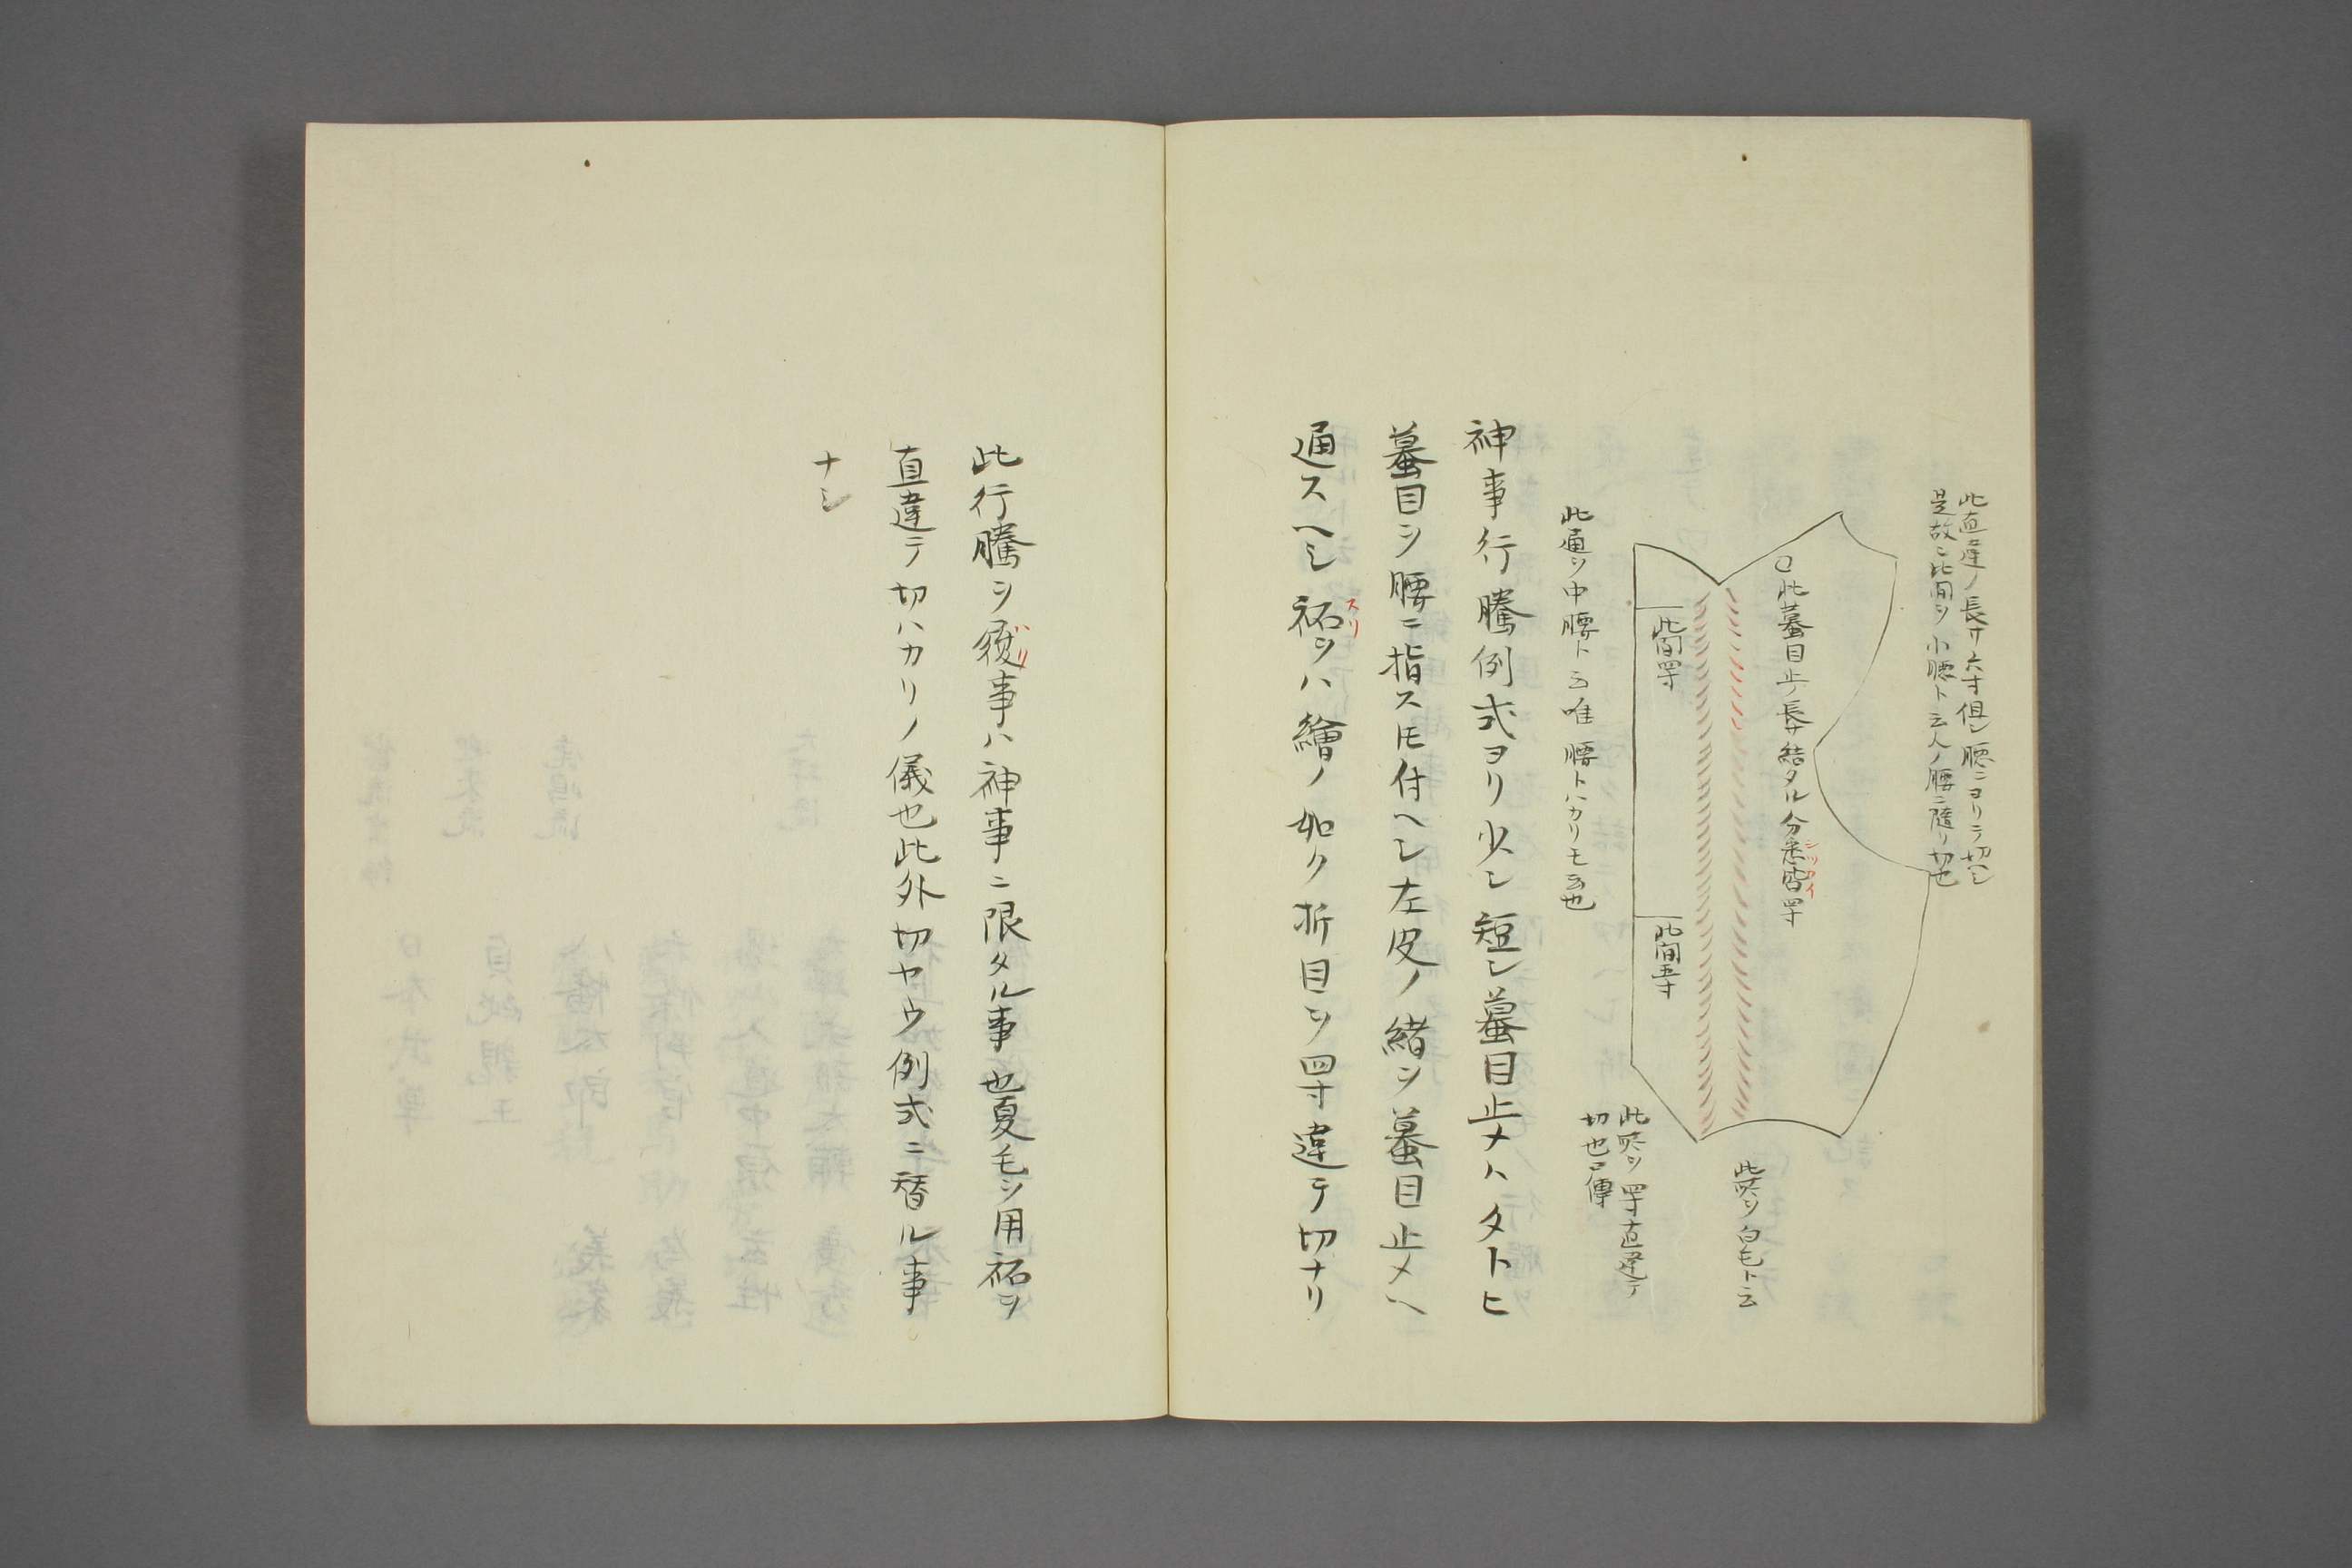 此直違ノ長サ六寸但シ腰ニヨリテ切ヘシ
是故ニ此間ヲ小腰ト云人ノ腰ニ隨リ切也
此蟇目止ノ長サ結タル分悉皆四寸
シツカイ
此間四寸
此間五寸
此処ヲ白毛ト云
此処ヲ四寸直違テ
切也口傳
此通ヲ中腰ト云唯腰トハカリモ云也
神事行騰例式ヨリ少シ短シ蟇目止メハタトヒ
蟇目ヲ腰ニ指ス𪜈付ヘシ左皮ノ緒ヲ蟇目止メヘ
通スヘシ祏ヲハ繪ノ如ク折目ヲ四寸違テ切ナリ
スリ
此行騰ヲ事ハ神事ニ限タル事也夏毛ヲ用祏ヲ
直違テ切ハカリノ儀也此外切ヤウ例式ニ替ル事
ナシ